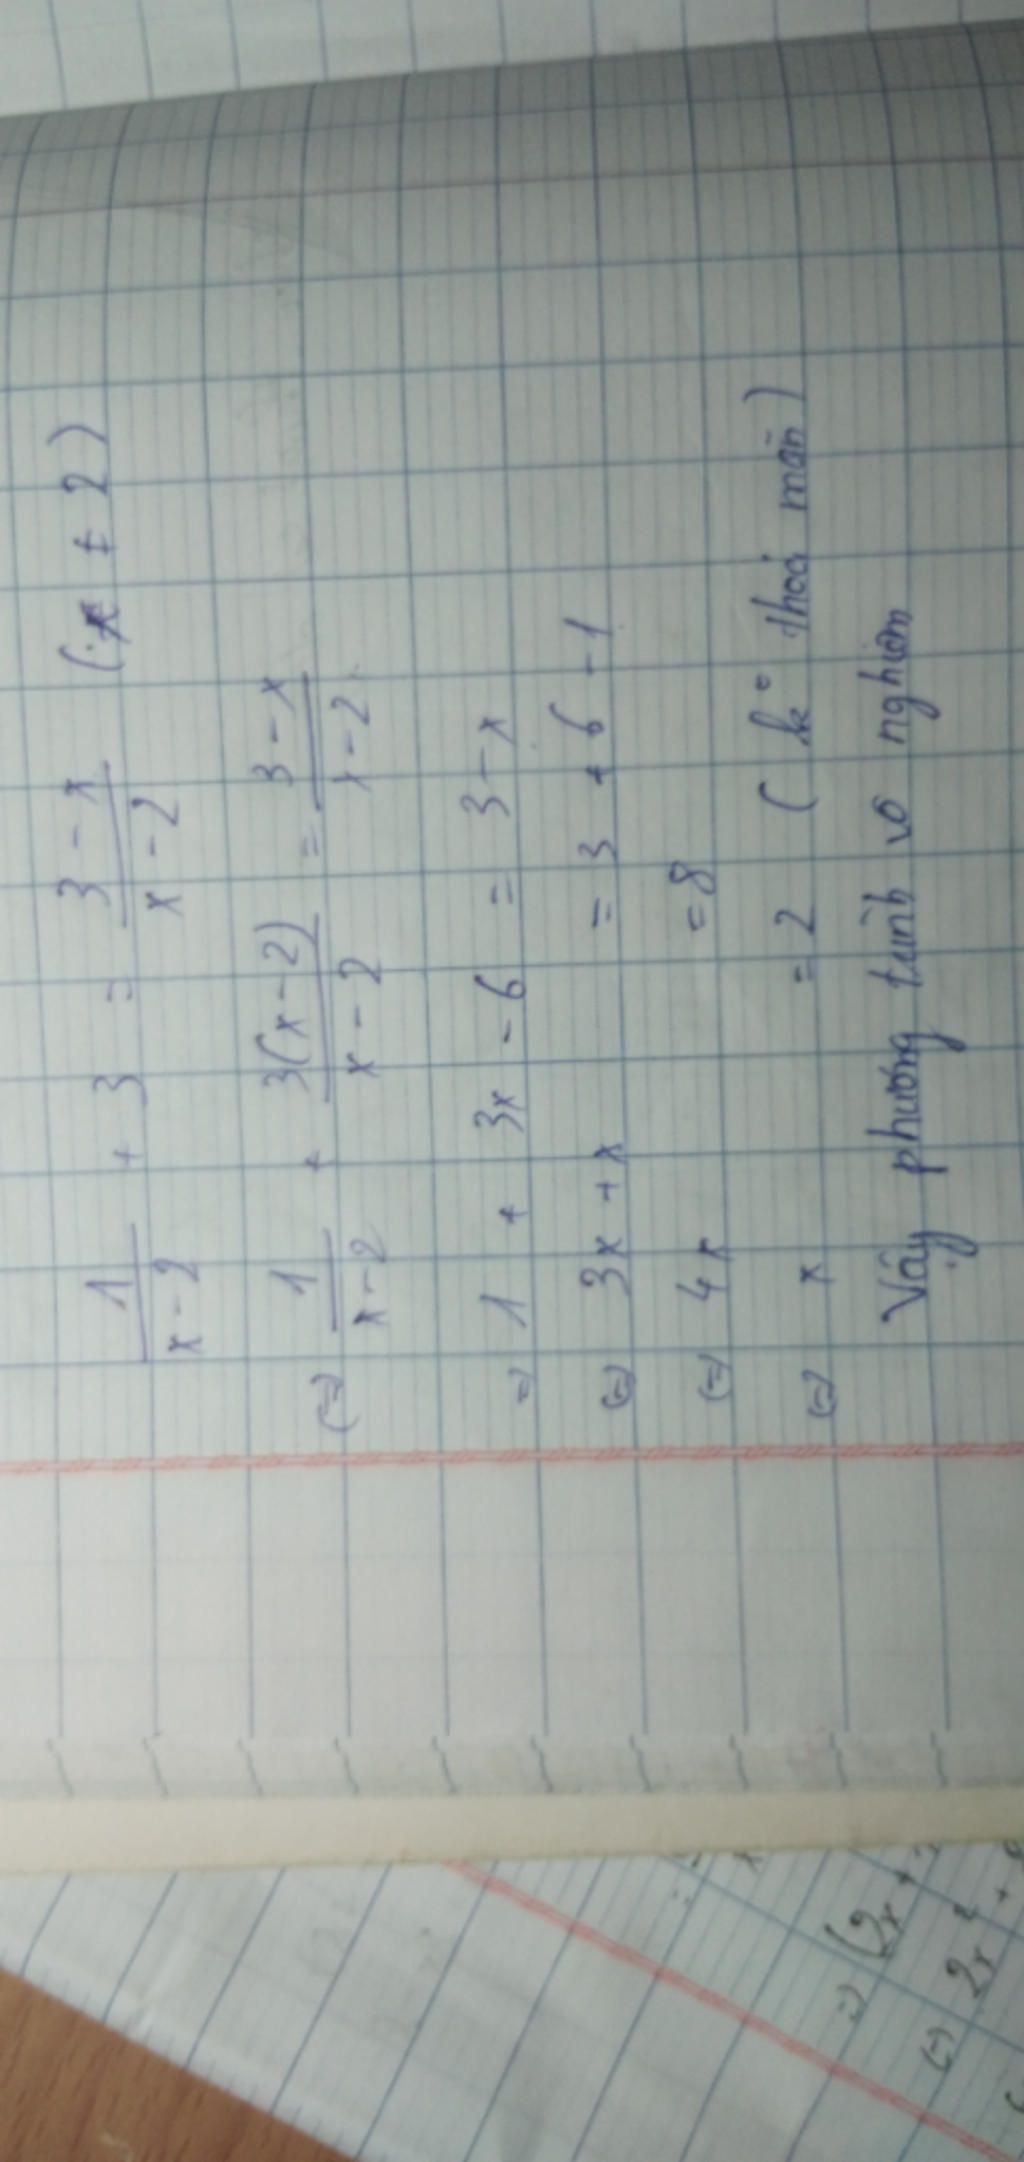 1/(x-2) + 3 = (3-x)/(x-2) (x ≠ 2)
(=) 1/(x-2) + 3(x-2)/(x-2) = (3-x)/(x-2)
=) 1 + 3x - 6 = 3 - x
(=) 3x + x = 3 + 6 - 1
(=) 4x = 8
(=) x = 2 ( k° thoả mãn )
Vậy phương trình vô nghiệm
=) (2x +
(=) 2x² +